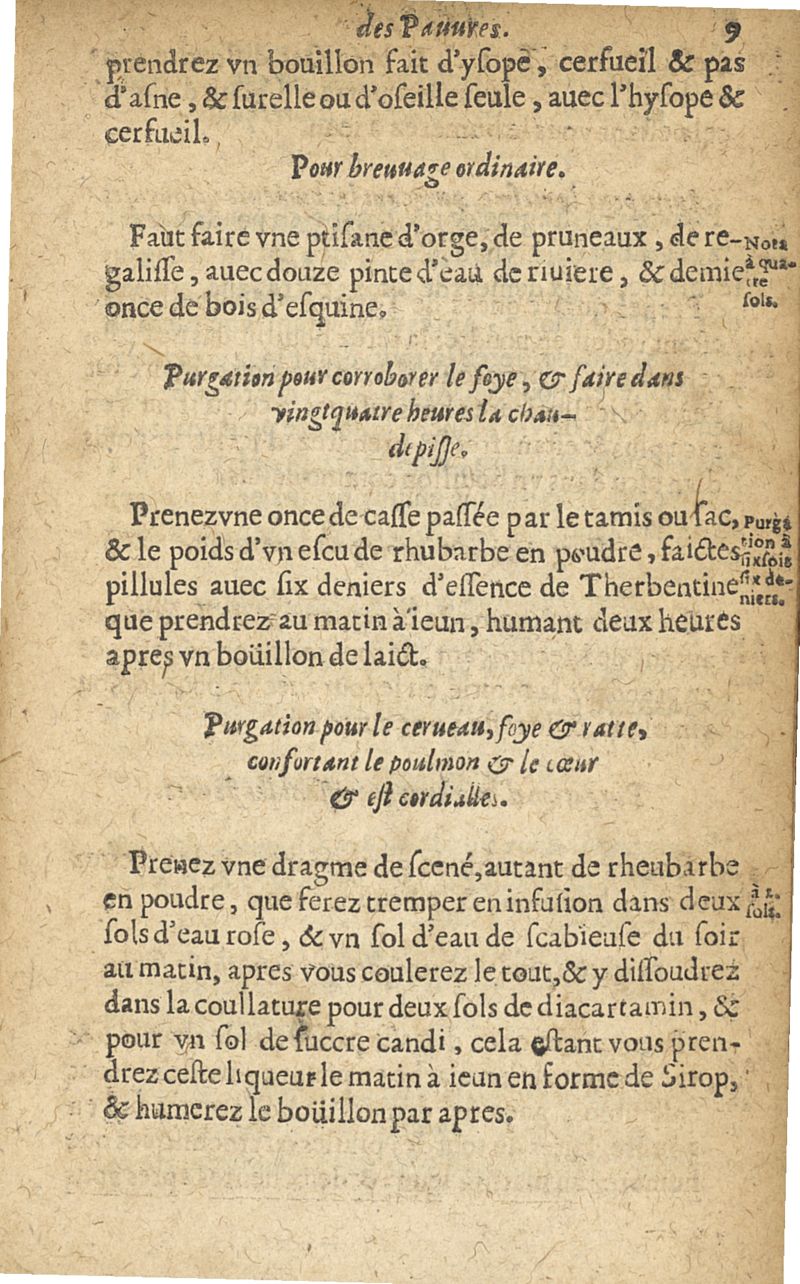 des Pauures. 9
prendrez vn bouillon fait d'ysope, cerfueil & pas
d'asne, & surelle ou d'oseille seule, auec l'hysope &
cerfueil.
Pour breuuage ordinaire.
Faut faire vne ptisane d'orge, de pruneaux, de re-
galisse, auec douze pinte d'eau de riuiere, & demie
once de bois d'esquine.
Nota
à qua-
tre
sols.
Purgation pour corroborer le foye, & faire dans
vingtquatre heures la chau-
depisse.
Prenez vne once de casse passée par le tamis ou sac,
& le poids d'vn escu de rhubarbe en poudre, faictes
pillules auec six deniers d'essence de Therbentine
que prendrez au matin à ieun, humant deux heures
apres vn boüillon de laict.
Purga
tion à
sixsols
six de-
niers.
Purgation pour le cerueau, foye & ratte,
confortant le poulmon & le cœur
& est cordialles.
Prenez vne dragme de scené, autant de rheubarbe
en poudre, que ferez tremper en infusion dans deux
sols d'eau rose, & vn sol d'eau de scabieuse du soir
au matin, apres vous coulerez le tout, & y dissoudrez
dans la coullature pour deux sols de diacartamin, &
pour vn sol de succre candi, cela estant vous pren-
drez ceste liqueur le matin à ieun en forme de Sirop,
& humerez le boüillon par apres.
à
sols.